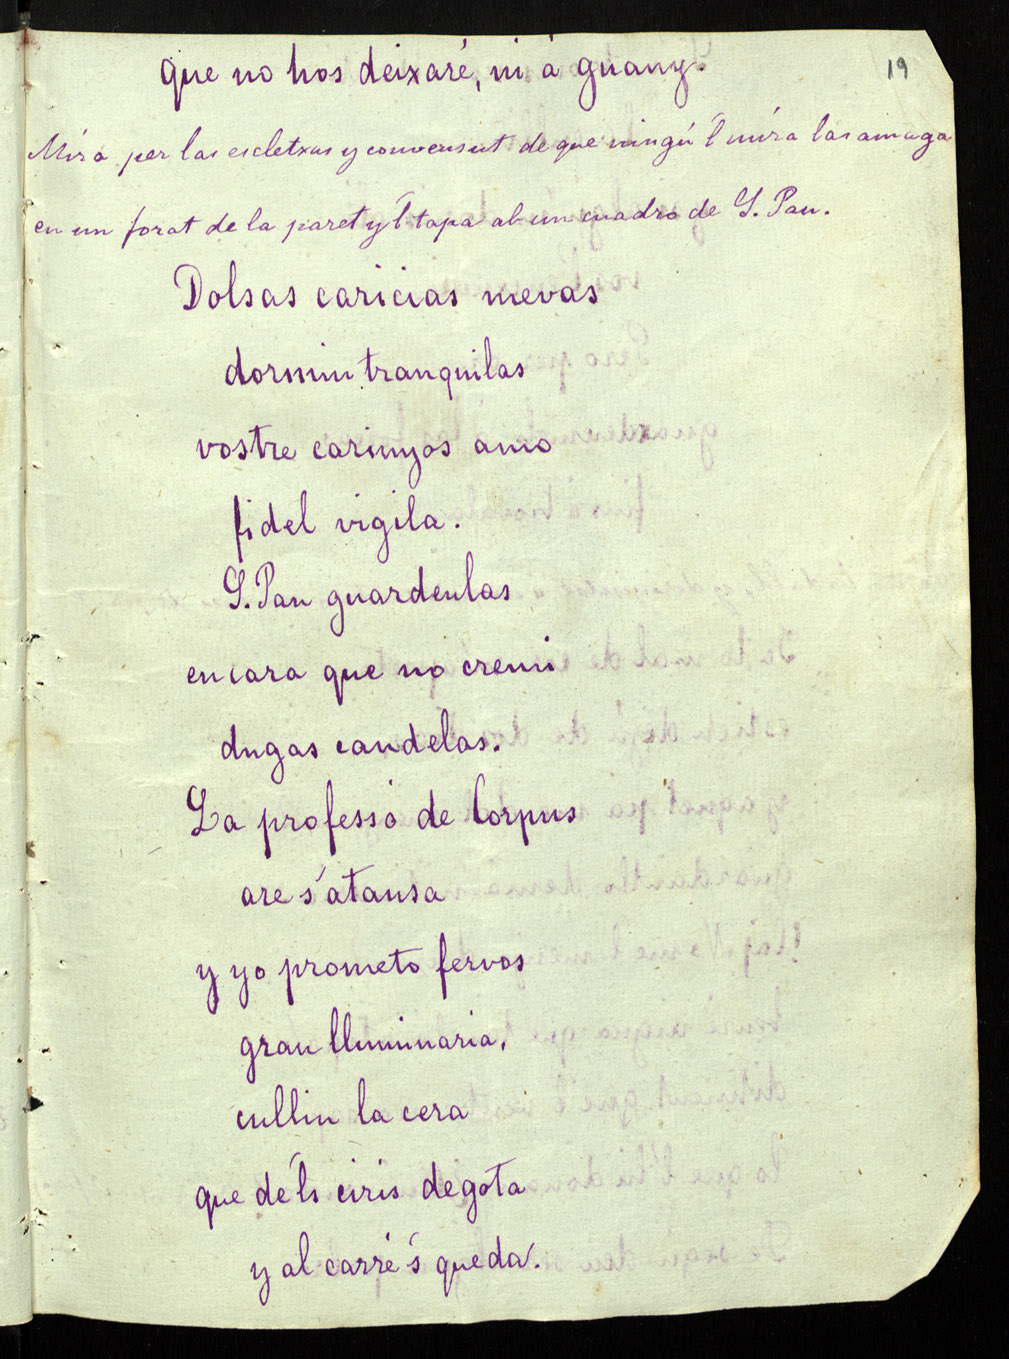 19
que no hos deixaré, ni á guany.
Mira per las escletxas y convensut de que ningú l' mira las amaga
en un forat de la paret y l' tapa ab un cuadro de S. Pau.
Dolsas caricias mevas
dormiu tranquilas
vostre carinyos amo
fidel vigila.
S. Pau guardeulas
encara que no cremi
dugas candelas.
La professó de Corpus
are s' atansa
y yo prometo fervos
gran lluminaria,
cullin la cera
que dels ciris degota
y al carré s' queda.